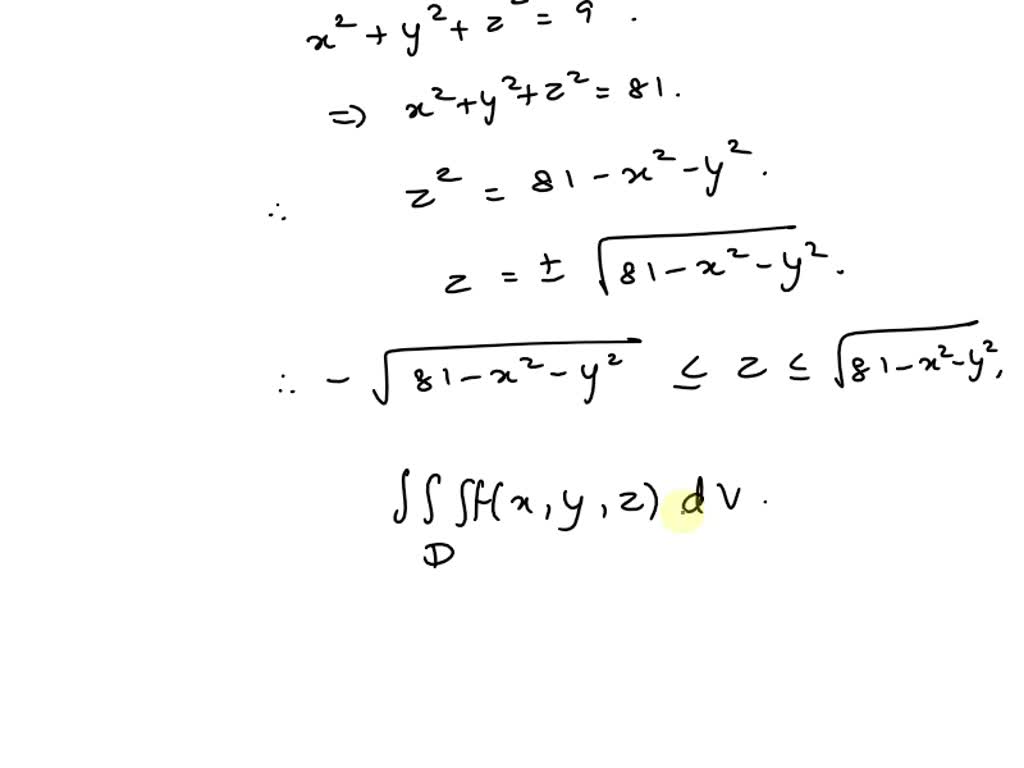 x² + y² + z² = 9 .
⇒ x² + y² + z² = 81 .
∴ z² = 81 − x² − y² .
z = ± √(81 − x² − y²) .
∴ − √(81 − x² − y²) ≤ z ≤ √(81 − x² − y²) ,
∫∫∫ f(x, y, z) dV .
D